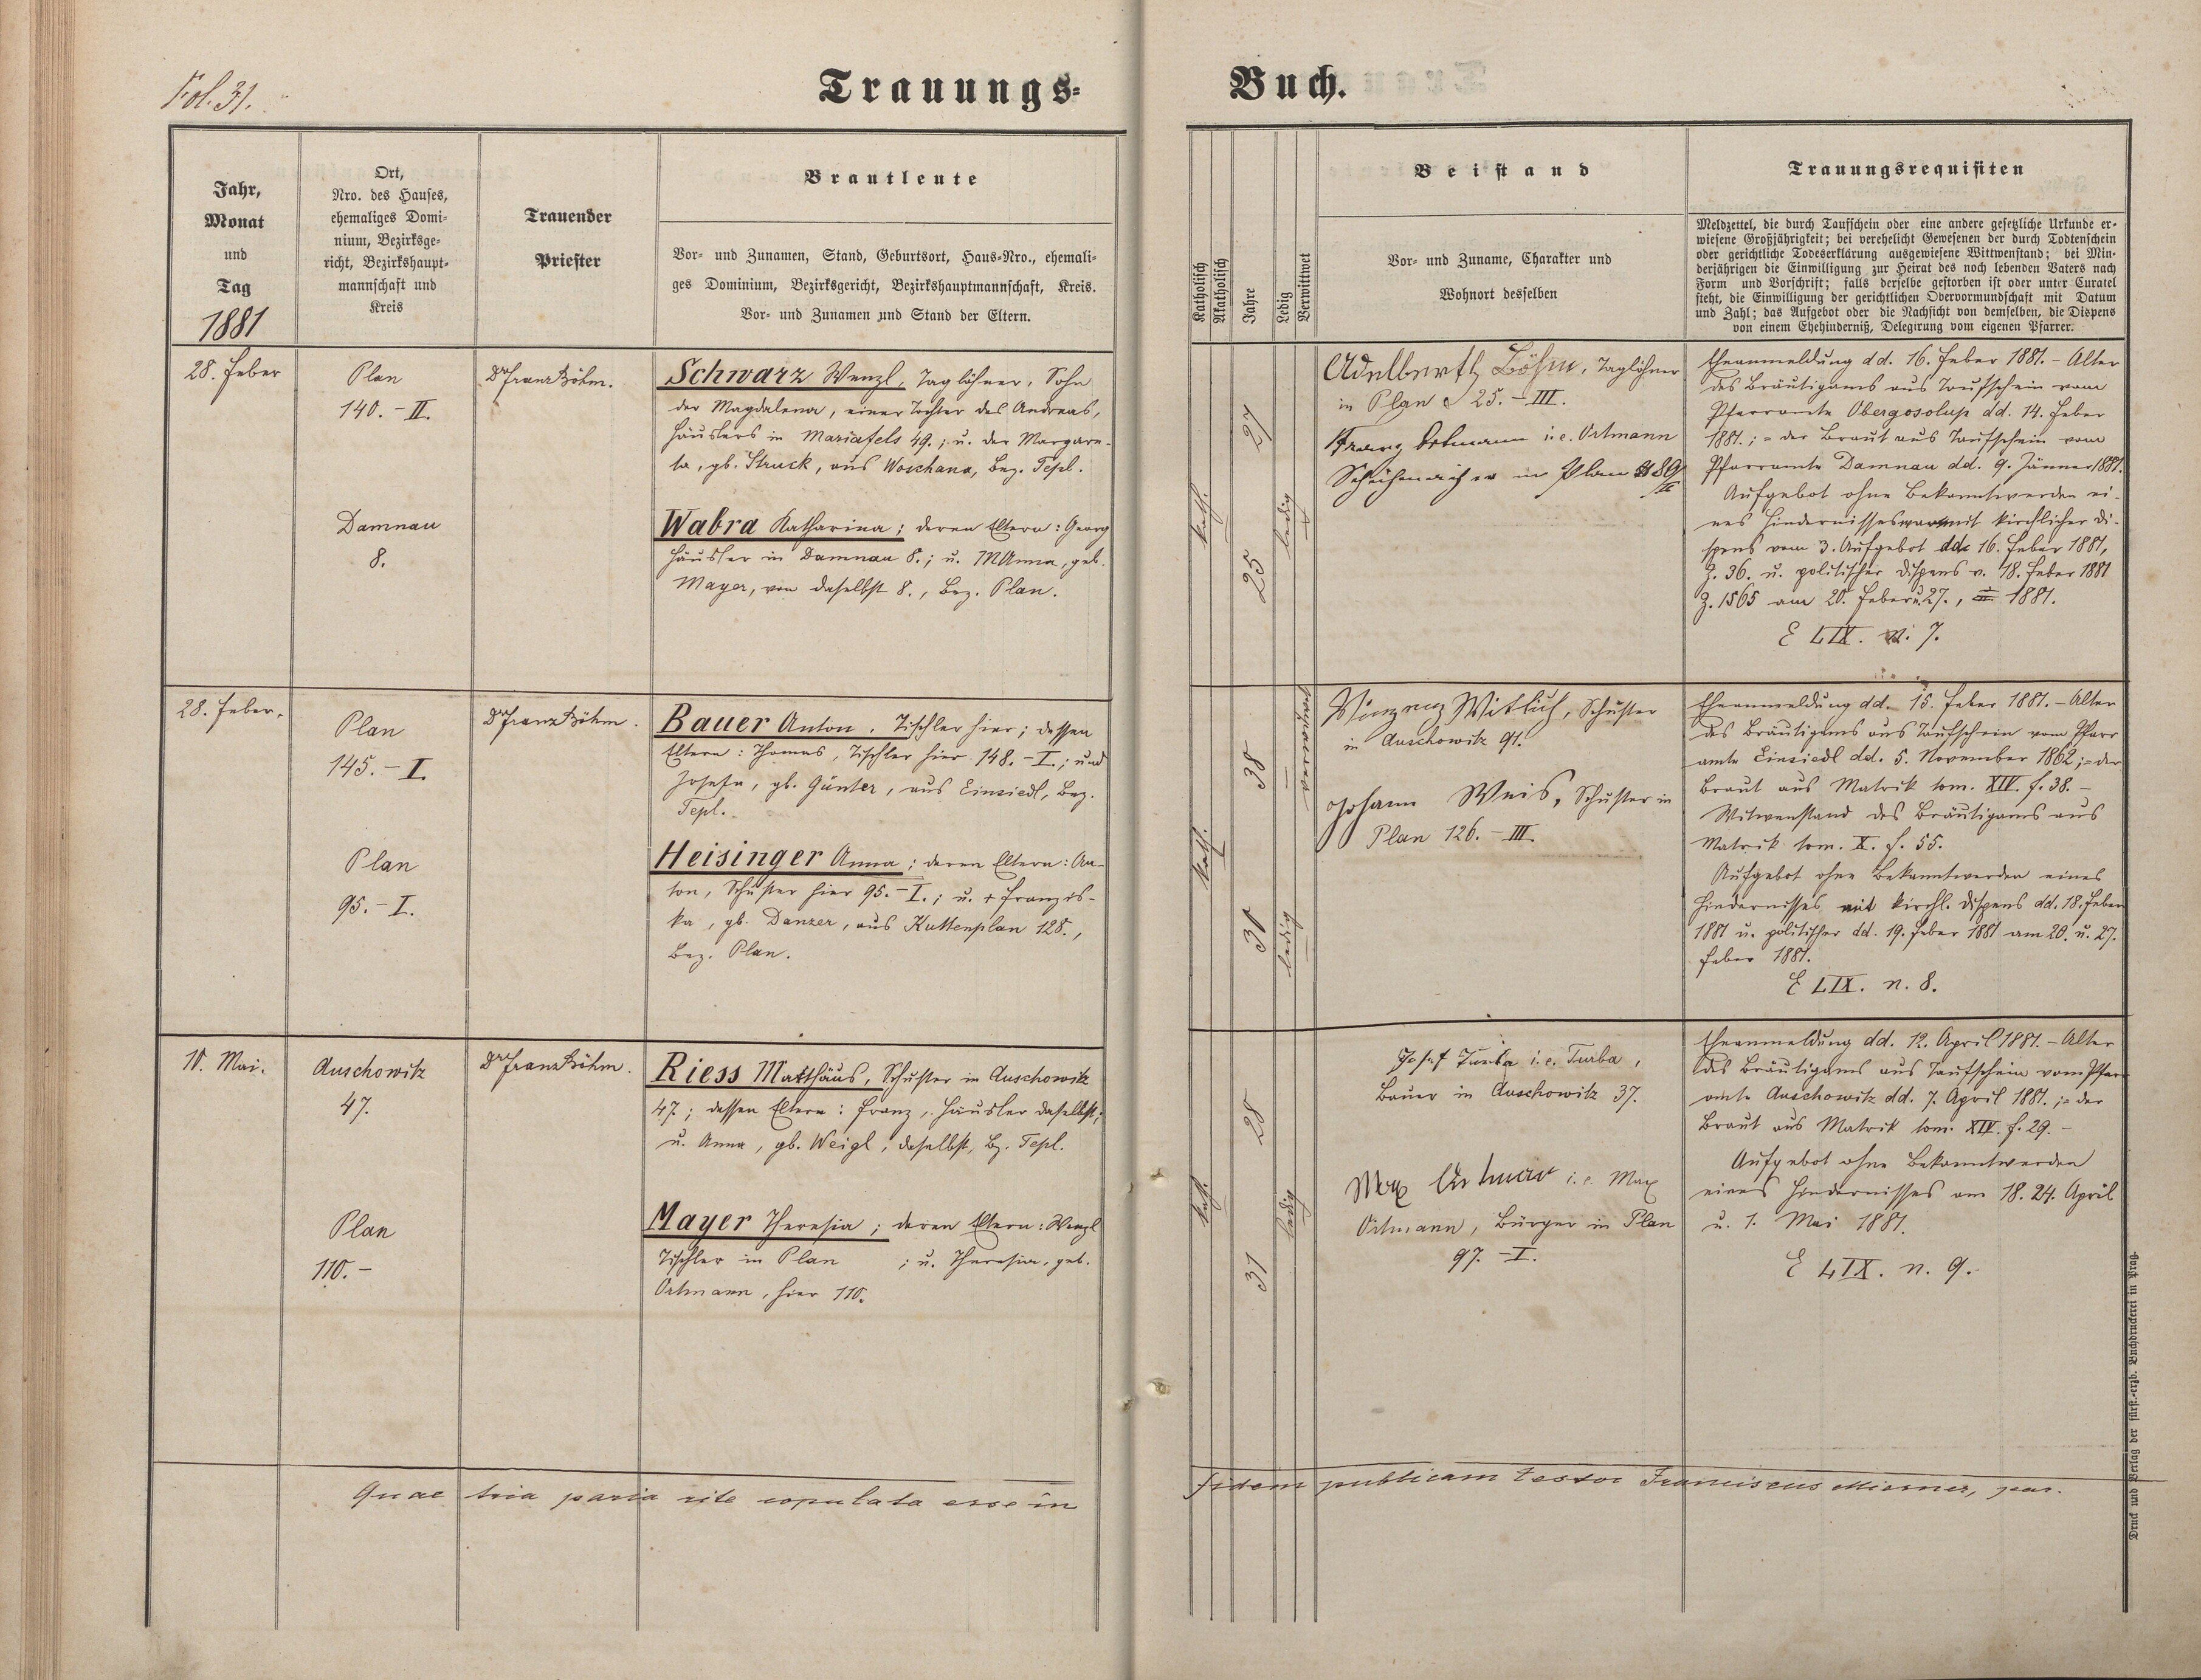 Fol. 31.
Trauungs-
Buch.
Jahr,
Monat
und
Tag
1881
Ort,
Nro. des Hauses,
ehemaliges Domi-
nium, Bezirksge-
richt, Bezirkshaupt-
mannschaft und
Kreis
Trauender
Priester
Brautleute
Vor- und Zunamen, Stand, Geburtsort, Haus-Nro., ehemali-
ges Dominium, Bezirksgericht, Bezirkshauptmannschaft, Kreis.
Vor- und Zunamen und Stand der Eltern.
Katholisch
Akatholisch
Jahre
Ledig
Verwittwet
Beistand
Vor- und Zuname, Charakter und
Wohnort desselben
Trauungsrequisiten
Meldzettel, die durch Taufschein oder eine andere gesetzliche Urkunde er-
wiesene Großjährigkeit; bei verehelicht Gewesenen der durch Todtenschein
oder gerichtliche Todeserklärung ausgewiesene Wittwenstand; bei Min-
derjährigen die Einwilligung zur Heirat des noch lebenden Vaters nach
Form und Vorschrift; falls derselbe gestorben ist oder unter Curatel
steht, die Einwilligung der gerichtlichen Obervormundschaft mit Datum
und Zahl; das Aufgebot oder die Nachsicht von demselben, die Dispens
von einem Ehehinderniß, Delegirung vom eigenen Pfarrer.
28. Feber
Plan
140. – II.
Damnau
8.
Dr Franz Böhm.
Schwarz Wenzl, Taglöhner, Sohn
der Magdalena, einer Tochter des Andreas,
Häuslers in Mariafels 49.; u. der Margare-
ta, gb. Struck, aus Woschana, Bez. Tepl.
Wabra Katharina; deren Eltern: Georg
Häusler in Damnau 8.; u. MAnna, geb.
Mayer, von daselbst 8., Bez. Plan.
kath.
27
25
ledig
Adelberth Böhm, Taglöhner
in Plan 25. – III.
Franz i. e. Ortmann
Schuhmacher in Plan 89/II
Eheanmeldung dd. 16. Feber 1881. – Alter
des Bräutigams aus Taufschein vom
Pfarramte Obergosolup dd. 14. Feber
1881.; = der Braut aus Taufschein vom
Pfarramte Damnau dd. 9. Jänner 1881.
Aufgebot ohne Bekanntwerden ei-
nes Hindernisses mit kirchlicher Di-
spens vom 3. Aufgebot dd. 16. Feber 1881,
Z. 36. u. politischer Dispens v. 18. Feber 1881
Z. 1565 am 20. Feber u. 27., 1881.
E LIX. n. 7.
28. Feber.
Plan
145. – I.
Plan
95. – I.
Dr Franz Böhm.
Bauer Anton, Tischler hier; dessen
Eltern: Thomas, Tischler hier 148. – I.; und
Josefa, gb. Günter, aus Einsiedl, Bez.
Tepl.
Heisinger Anna; deren Eltern: An-
ton, Schuster hier 95. – I.; u. + Franzis-
ka, gb. Danzer, aus Kuttenplan 128.,
Bez. Plan.
kath.
38
30
verwitwet
ledig
Vinzenz Witlich, Schuster
in Auschowitz 91.
Johann Weis, Schuster in
Plan 126. – III.
Eheanmeldung dd. 15. Feber 1881. – Alter
des Bräutigams aus Taufschein vom Pfarr
amte Einsiedl dd. 5. November 1862; = der
Braut aus Matrik tom. XIV. f. 38. –
Witwenstand des Bräutigams aus
Matrik tom. X. f. 55.
Aufgebot ohne Bekanntwerden eines
Hindernisses mit kirchl. Dispens dd. 18. Feber
1881 u. politischer dd. 19. Feber 1881 am 20. u. 27.
Feber 1881.
E LIX. n. 8.
10. Mai.
Auschowitz
47.
Plan
110. –
Dr Franz Böhm.
Riess Matthäus, Schuster in Auschowitz
47; dessen Eltern: Franz, Häusler daselbst;
u. Anna, gb. Weigl, daselbst, Bz. Tepl.
Mayer Theresia; deren Eltern: Wenzl
Tischler in Plan ; u. Theresia, geb.
Ortmann, hier 110.
kath.
28
31
ledig
Josef Turba i. e. Turba,
Bauer in Auschowitz 37.
Max Ortmann i. e. Max
Ortmann, Bürger in Plan
97. – I.
Eheanmeldung dd. 12. April 1881. – Alter
des Bräutigams aus Taufschein vom Pfarr
amte Auschowitz dd. 7. April 1881.; = der
Braut aus Matrik tom. XIV. f. 29. –
Aufgebot ohne Bekanntwerden
eines Hindernisses am 18. 24. April
u. 1. Mai 1881.
E LIX. n. 9.
Quae tria paria rite copulata esse in
fidem publicam testor Franciscus
Druck und Verlag der fürst.-erzb. Buchdruckerei in Prag.